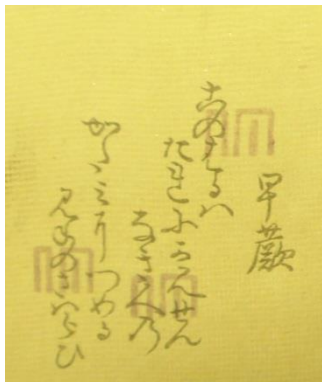 早蕨
このはるハ
たれにかみせん
なき人の
かたミにつめる
みねのさわらひ